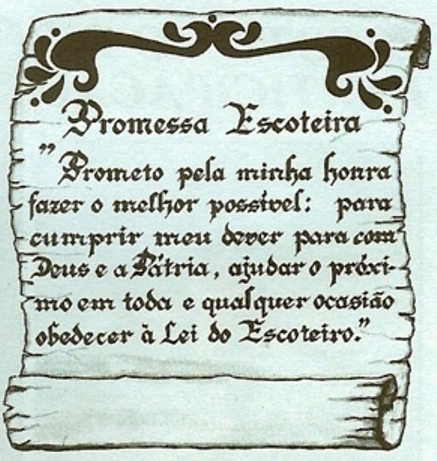 Promessa Escoteira
"Prometo pela minha honra
fazer o melhor possível: para
cumprir meu dever para com
Deus e a Pátria, ajudar o próxi-
mo em toda e qualquer ocasião
obedecer à Lei do Escoteiro."